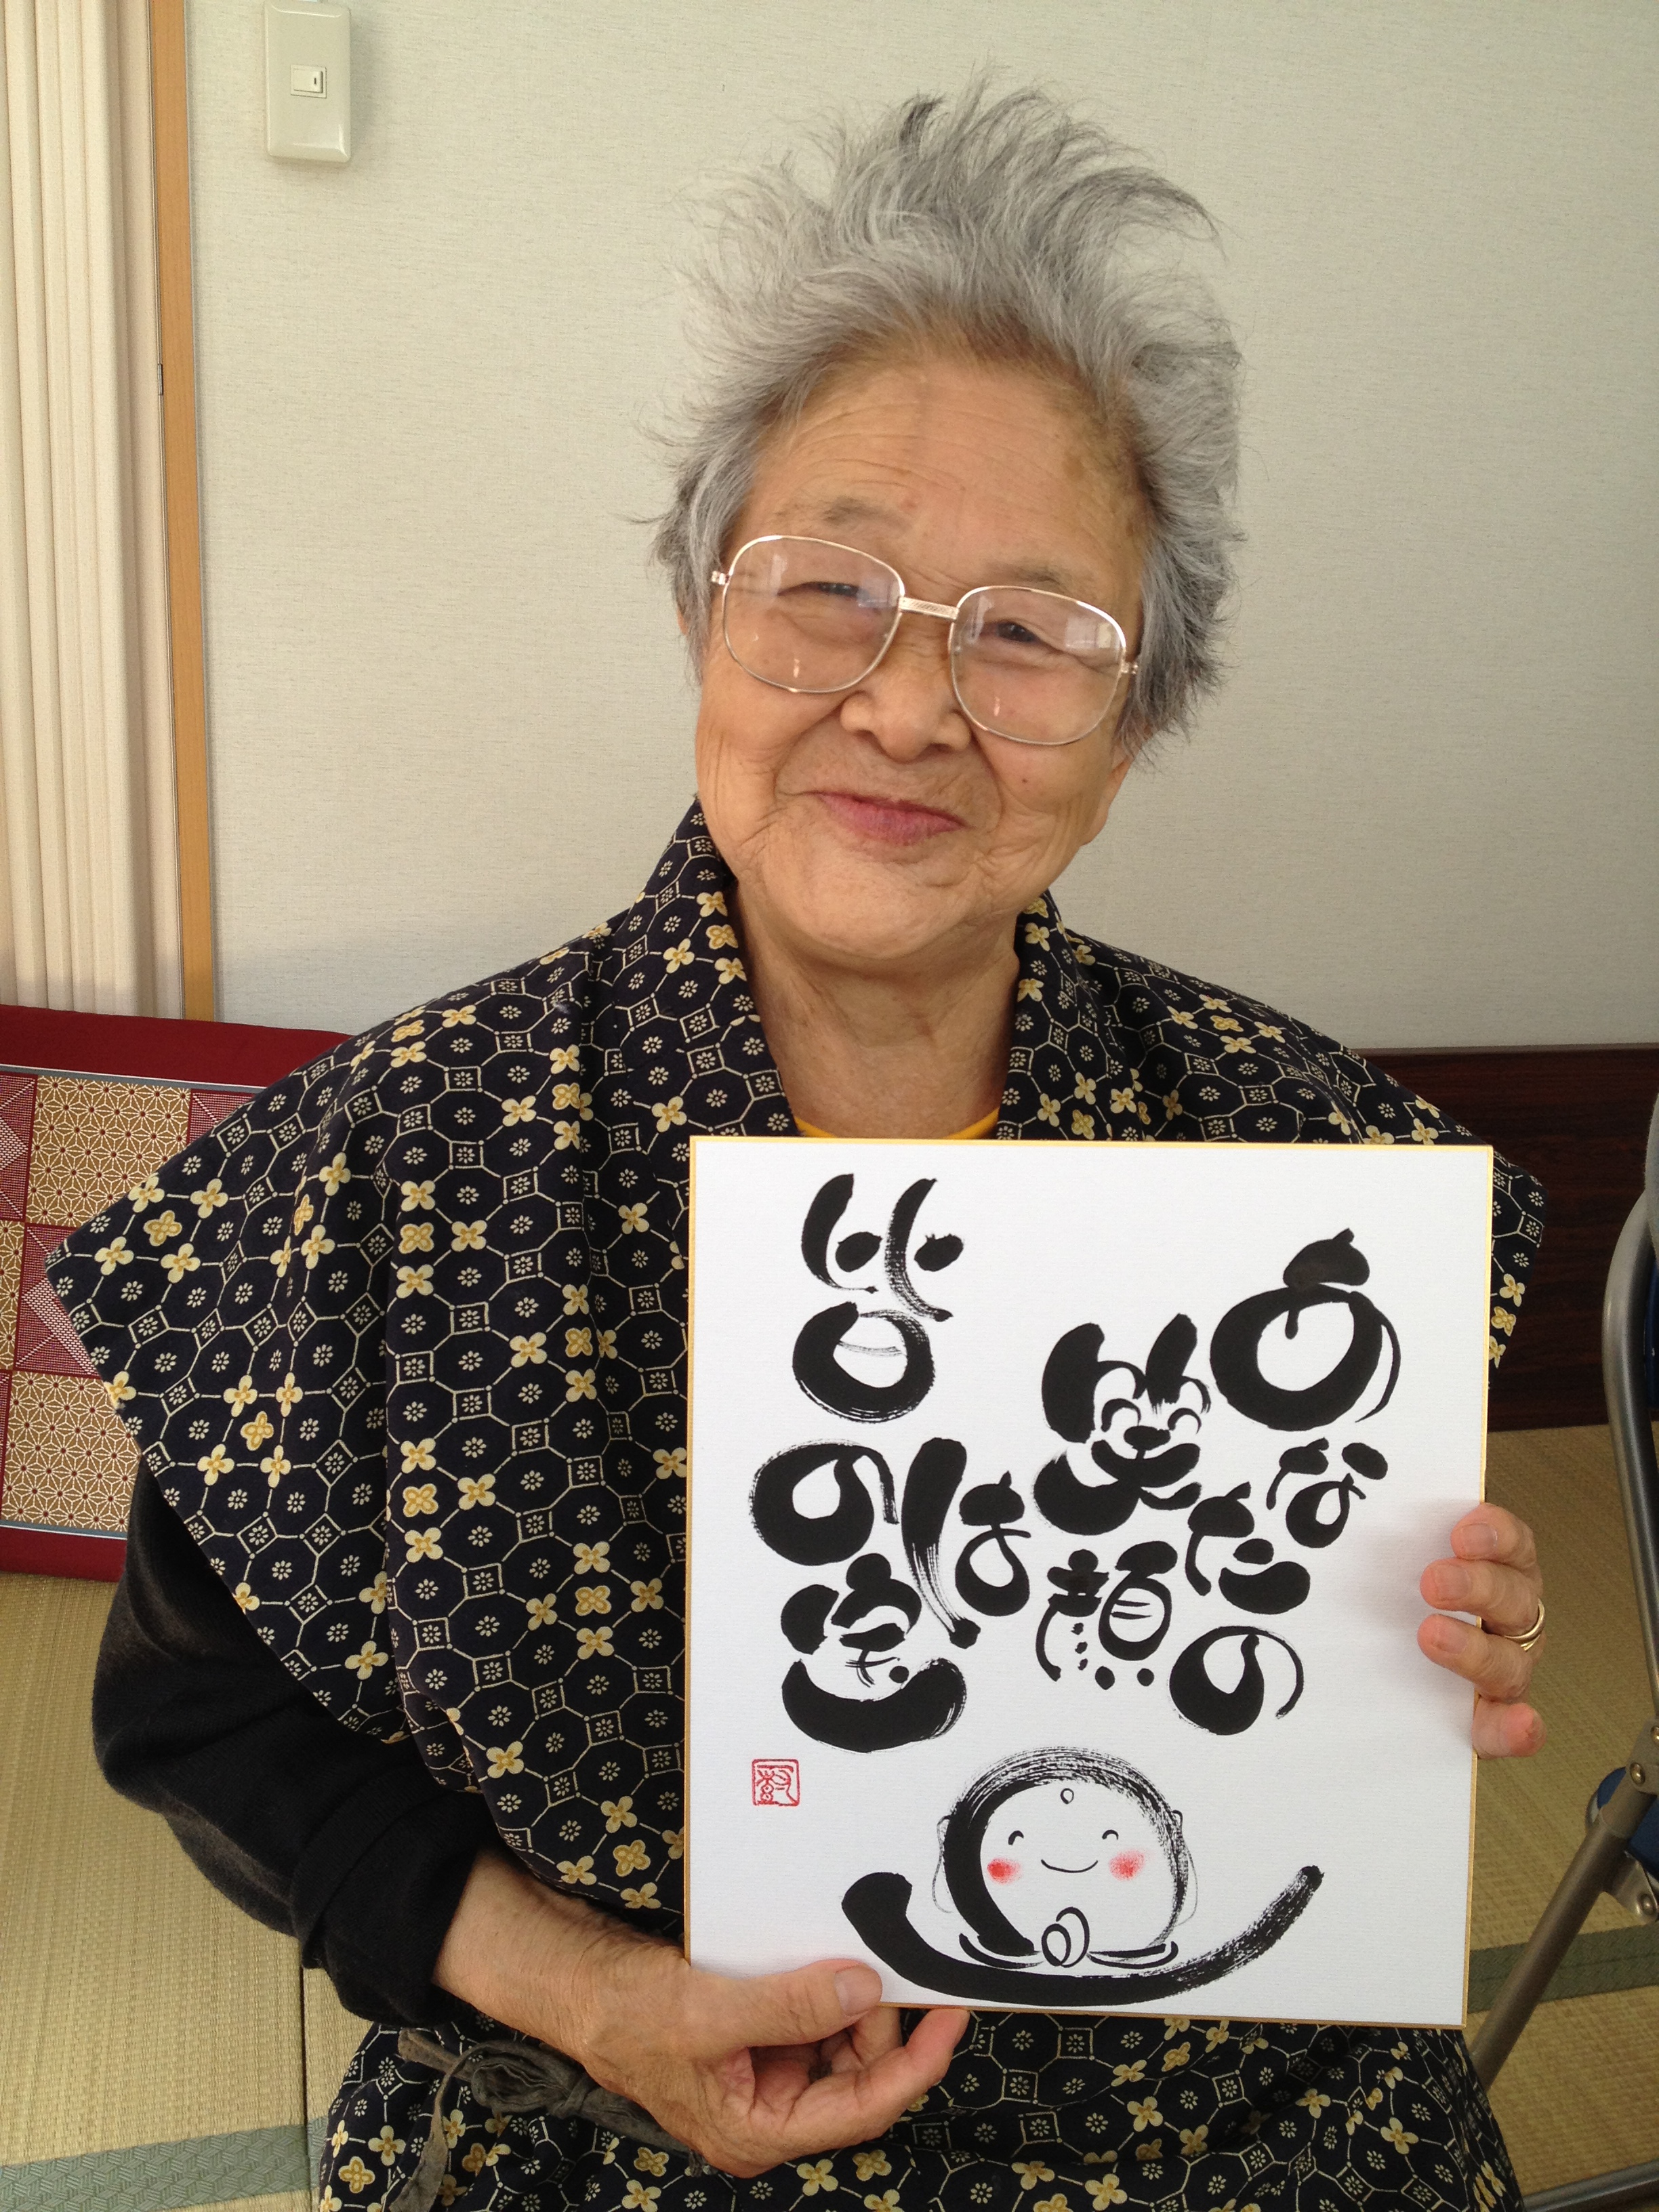 あなたの
笑顔
は
皆の宝